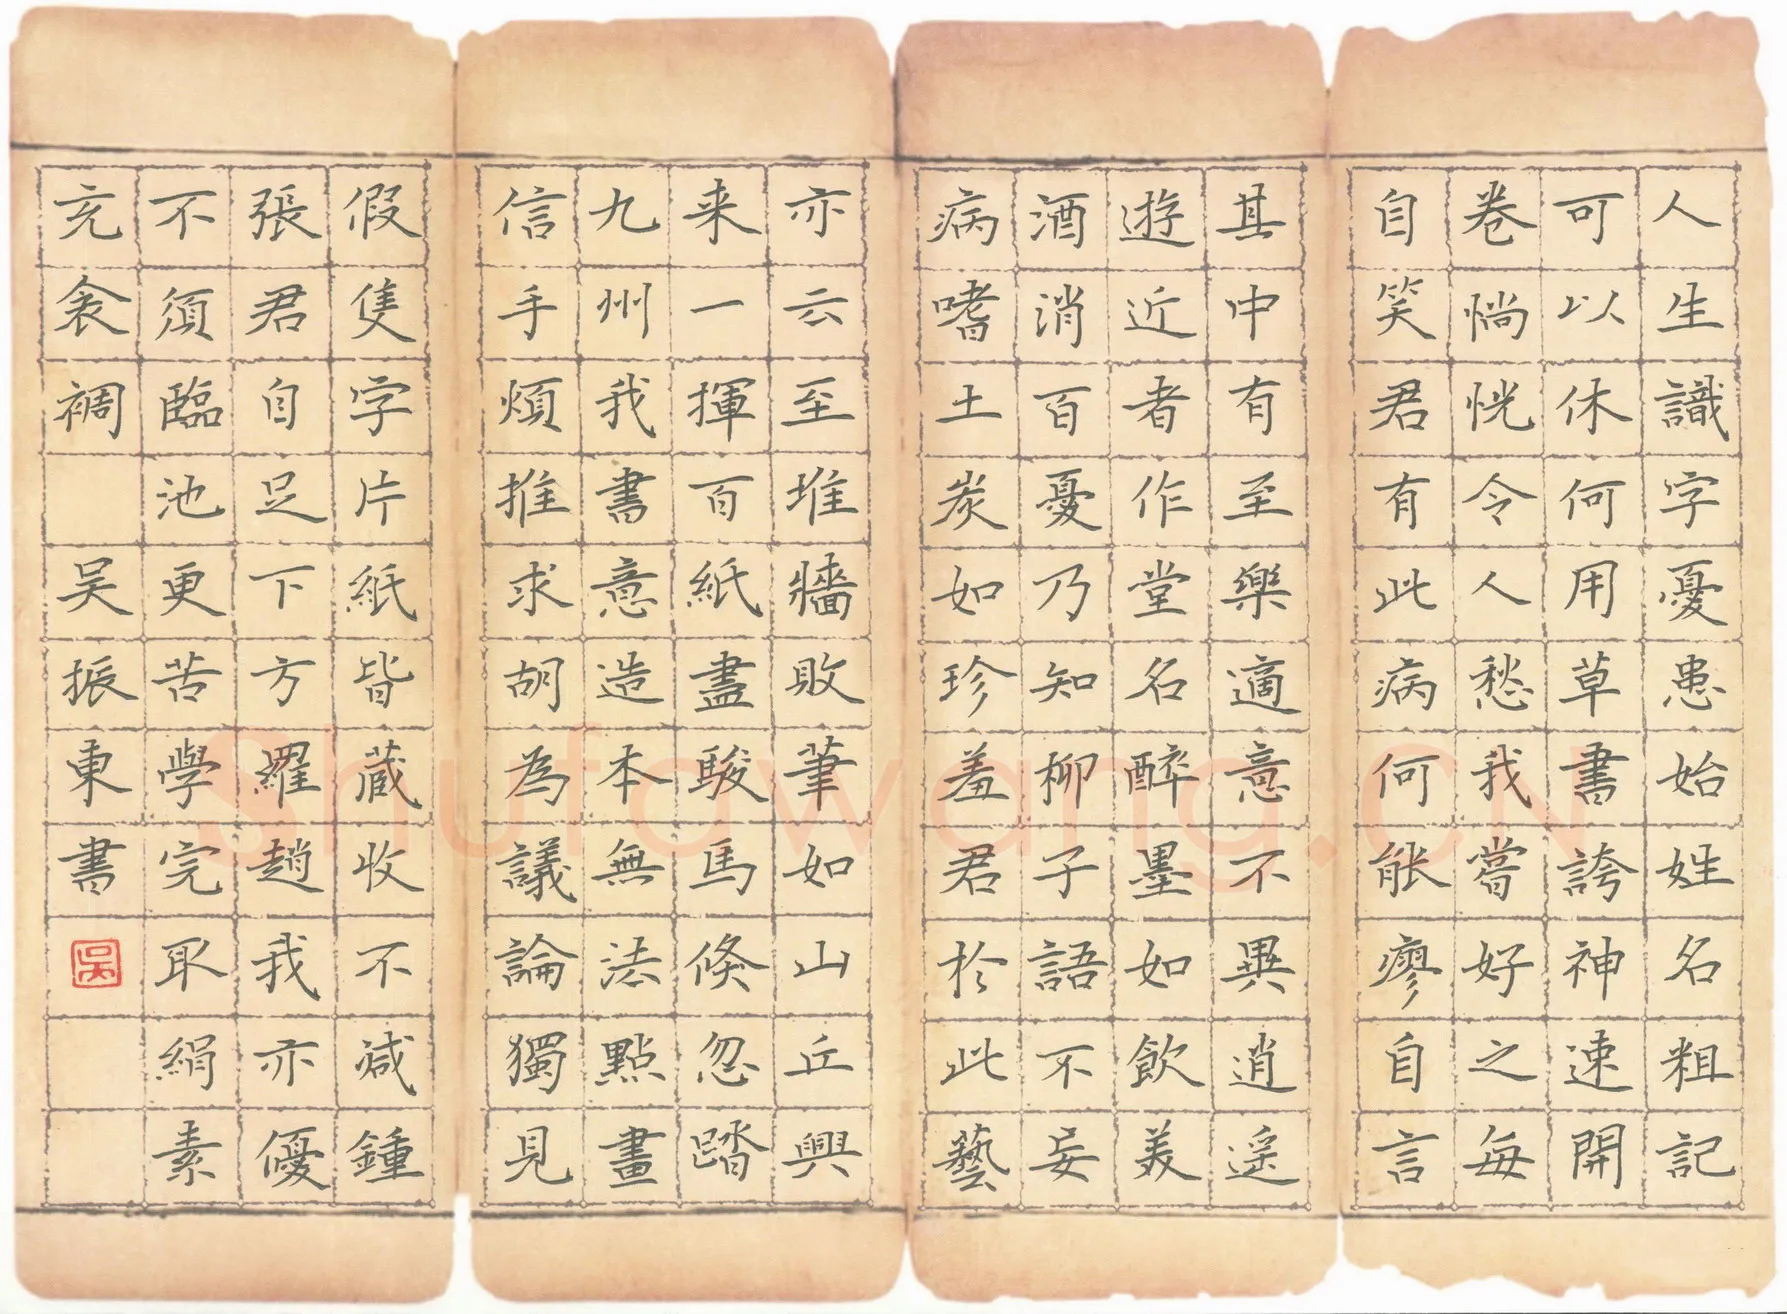 人生識字憂患始姓名粗記
可以休何用草書誇神速開
卷惝恍令人愁我嘗好之每
自笑君有此病何能廖自言
其中有至樂適意不異逍遥
遊近者作堂名醉墨如飲美
酒消百憂乃知柳子語不妄
病嗜土炭如珍羞君於此藝
亦云至堆牆敗筆如山丘興
来一揮百紙盡駿馬倏忽踏
九州我書意造本無法點畫
信手煩推求胡為議論獨見
假隻字片紙皆蔵收不减鍾
張君自足下方羅趙我亦優
不須臨池更苦學完取絹素
充衾裯
吴振東書
吳
Shufawang.CN